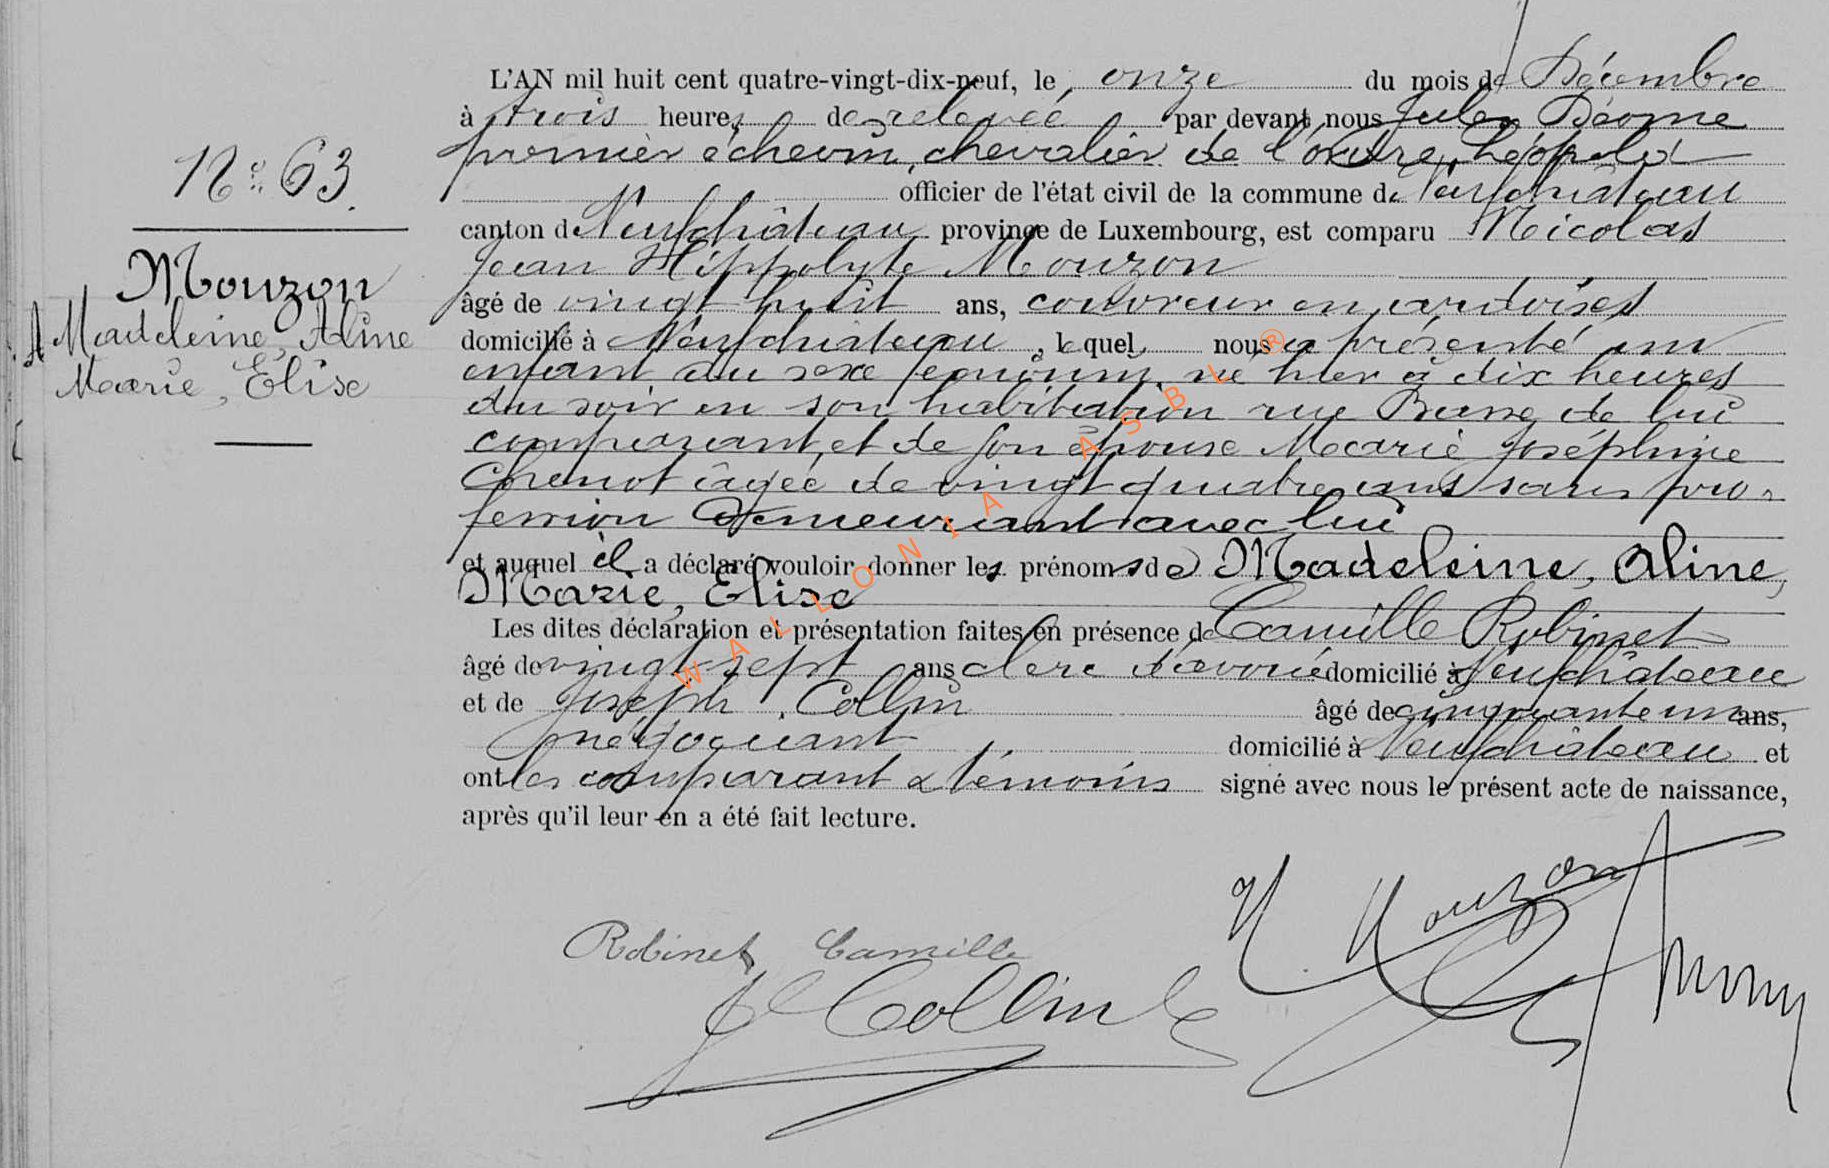 L'AN mil huit cent quatre-vingt-dix-neuf, le onze du mois de Décembre
à trois heures de relevée par devant nous Jules
premier echevin, chevalier de l'ordre Léopold
N° 63
officier de l'état civil de la commune de Neufchâteau
canton de Neufchâteau province de Luxembourg, est comparu Nicolas
Jean Hippolyte Mouzon
Mouzon
Madeleine, Aline
Marie, Elise
âgé de vingt huit ans, couvreur en ardoises
domicilié à Neufchâteau, lequel nous a présenté un
enfant du sexe féminin, né hier à dix heures
du soir en son habitation rue de lui
comparant, et de son épouse Marie Joséphine
Chenot âgée de vingt quatre ans sans pro-
fession demeurant avec lui
et auquel il a déclaré vouloir donner les prénoms de Madeleine, Aline,
Marie, Elise
Les dites déclaration et présentation faites en présence de Camille Robinet
âgé de vingt sept ans clerc d'avoué domicilié à Neufchâteau
et de Joseph Collin âgé de cinquante un ans,
négociant domicilié à Neufchâteau et
ont les comparant & témoins signé avec nous le présent acte de naissance,
après qu'il leur en a été fait lecture.
N. Mouzon
Robinet Camille
J Collin
WALLONIA ASBL ®